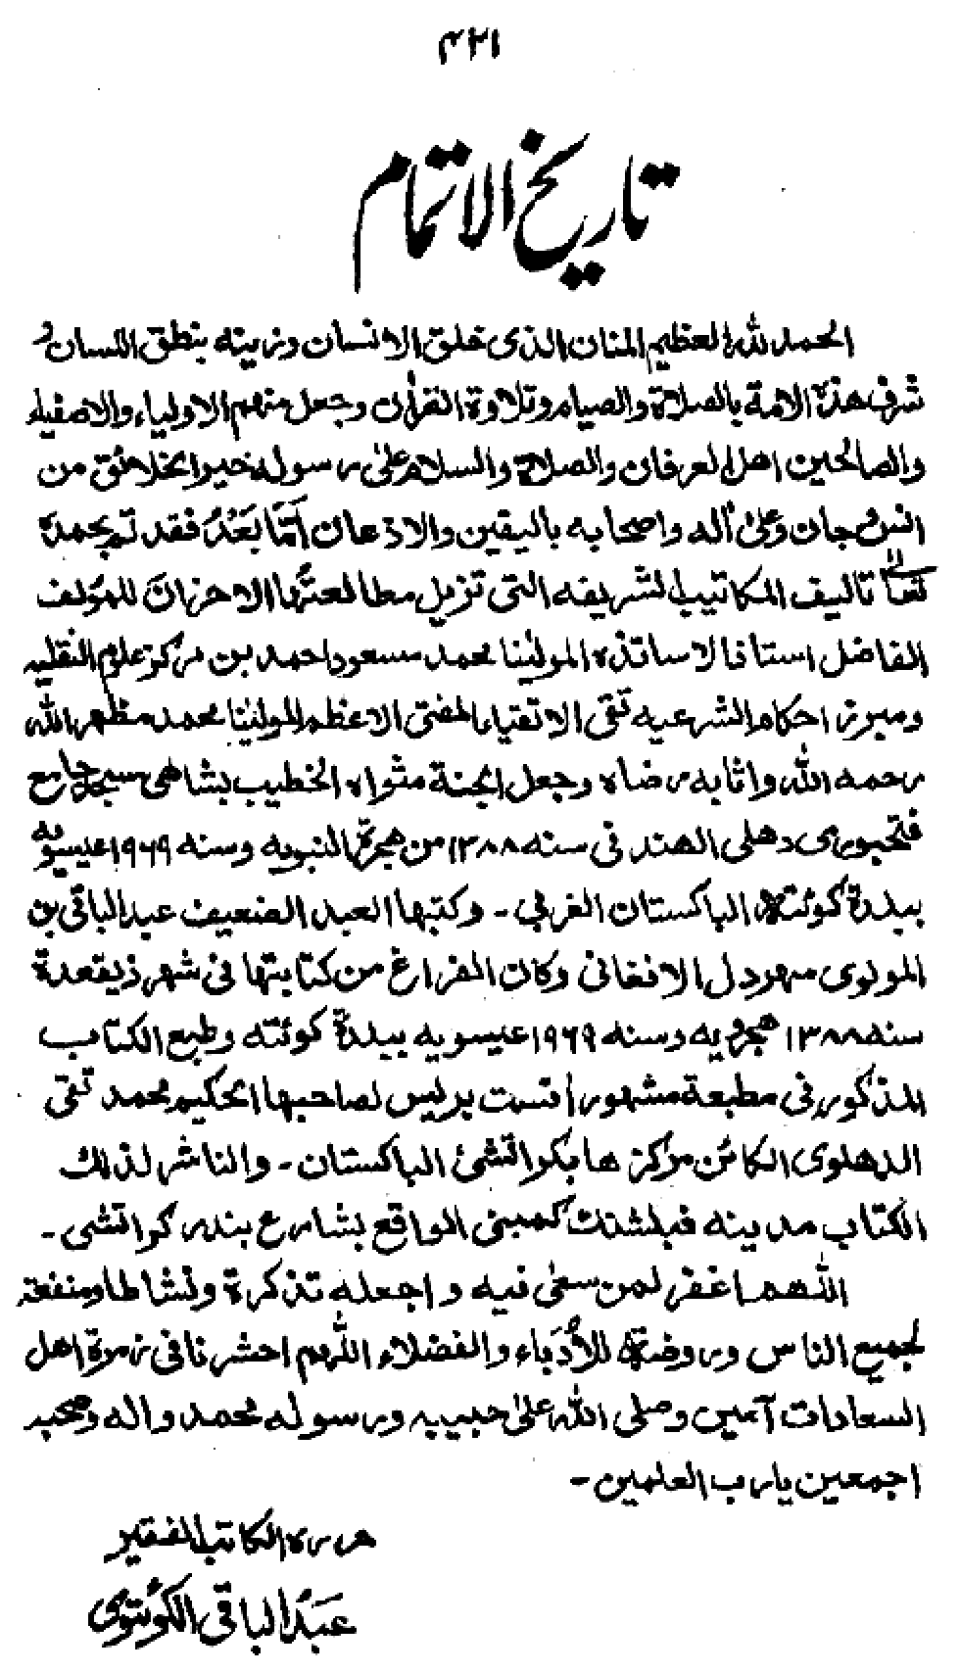 ۴۲۱
تاریخ الاتمام
الحمد للہ العظیم المنان الذی خلق الانسان وزینہ بنطق اللسان و
شرف ھذہ الامة بالصلاة والصیام وتلاوة القرآن وجعل منھم الاولیاء والاصفیاء
والصالحین اھل العرفان والصلاة والسلام علیٰ رسولہ خیر الخلائق من
انس و جان وعلیٰ آلہ واصحابہ بالیقین والاذعان اَمَّا بَعْدُ فقد تم بحمدہ
تعالیٰ تالیف المکاتیب الشریفہ التی تزیل مطالعتُہا الاحزانَ للمؤلف
الفاضل استاذ الاساتذہ المولیٰنا محمد مسعود احمد بن مرکز علوم النقلیہ
ومبرز احکام الشرعیہ تقی الاتقیاء المفتی الاعظم المولیٰنا محمد مظہر اللہ
رحمہ اللہ واثابہ رضاہ وجعل الجنة مثواہ الخطیب بشاھی مسجد جامع
فتحپوری دھلی الھند فی سنہ ۱۳۸۸ من ھجرة النبویہ وسنہ ۱۹۶۹ عیسویہ
ببلدة کوئتہ الباکستان الغربی ۔ وکتبہا العبد الضعیف عبد الباقی بن
المولوی سہر دل الافغانی وکان الفراغ من کتابتہا فی شھر ذیقعدة
سنہ ۱۳۸۸ ھجریہ وسنہ ۱۹۶۹ عیسویہ ببلدة کوئتہ وطبع الکتاب
المذکور فی مطبعة مشہور افست پریس لصاحبہا الحکیم محمد تقی
الدھلوی الکائن مرکزھا بکراتشئ الباکستان ۔ والناشر لذلک
الکتاب مدینہ فبلشنک کمبنی الواقع بشارع بندر کراتشی ۔
اللھم اغفر لمن سعیٰ فیہ واجعلہ تذکرة ونشاطا ومنفعة
لجمیع الناس وروضة للأُدَباء والفضلاء اللّٰہم احشرنا فی زمرة اھل
السعادات آمین وصلی اللہ علیٰ حبیبہ ورسولہ محمد والہ وصحبہ
اجمعین یارب العلمین ۔
حررہ الکاتب الفقیر
عَبدُ الباقی الکوئتوی